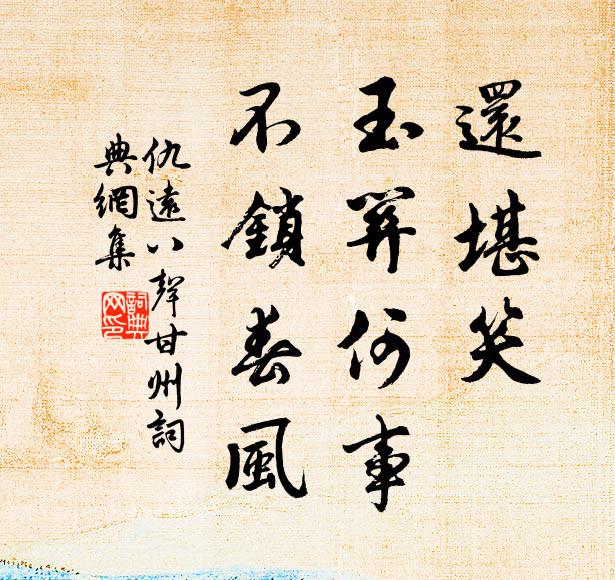 還堪笑
玉關何事
不鎖春風
仇遠八聲甘州詞
典網集
詞典
网印